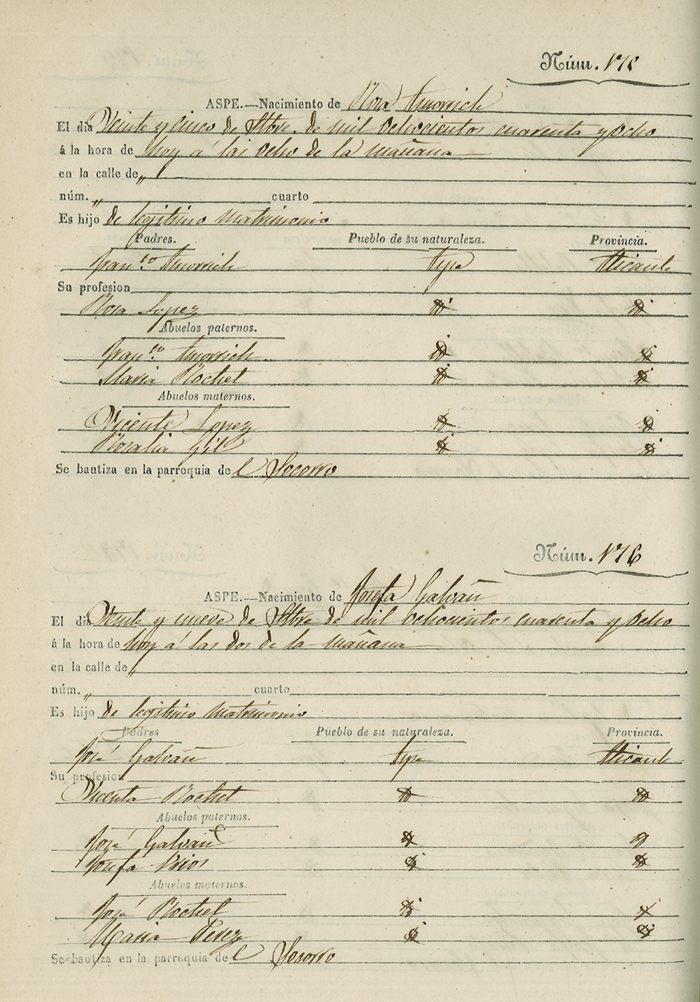 Núm. 175
ASPE.—Nacimiento de Rosa Amorrich
El día Veinte y cinco de Stbre. de mil ochocientos cuarenta y ocho
á la hora de hoy á las ocho de la mañana
en la calle de „
núm. „ cuarto
Es hijo de legitimo matrimonio
Padres. Pueblo de su naturaleza. Provincia.
Fran.co Amorrich Aspe Alicante
Su profesion
Rosa Lopez
Abuelos paternos.
Fran.co Amorrich
Maria Rochel
Abuelos maternos.
Vicente Lopez
Rosalia Gil
Se bautiza en la parroquia de el Socorro
Núm. 176
ASPE.—Nacimiento de Josefa Galvañ
El día Veinte y nueve de Stbre de mil ochocientos cuarenta y ocho
á la hora de hoy á las dos de la mañana
en la calle de „
núm. „ cuarto
Es hijo de legitimo matrimonio
Padres Pueblo de su naturaleza. Provincia.
José Galvañ Aspe Alicante
Su profesion
Vicenta Rochel
Abuelos paternos.
José Galvañ
Josefa
Abuelos maternos.
José Rochel
Maria Perez
Se bautiza en la parroquia de el Socorro